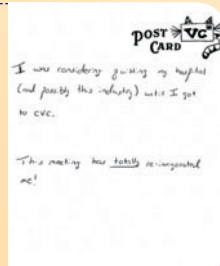 POST VC
CARD
I was considering quitting my hospital
(and possibly this industry) until I got
to CVC.
This meeting has totally re-invigorated
me!